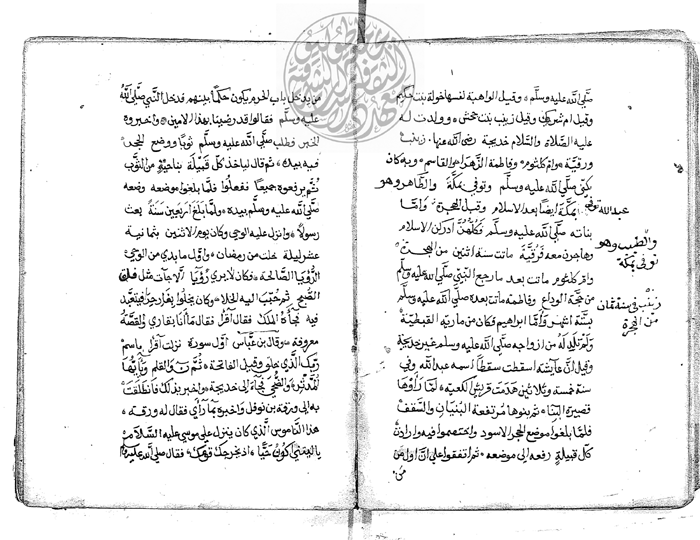 صلى الله عليه وسلم وقيل الواهبة نفسها خولة بنت حكيم
وقيل ام شريك وقيل زينب بنت جحش وولدت له
عليه الصلاة والسلام خديجة رضي الله عنها زينب
ورقية وام كلثوم وفاطمة الزهراء والقاسم وبه كان
يكنى صلى الله عليه وسلم وتوفي بمكة والطاهر وهو
عبد الله توفي
بمكة ايضا بعد الاسلام وقبل الهجرة واما
والطيب وهو
توفي بمكة
بناته صلى الله عليه وسلم فكلهن ادركن الاسلام
وهاجرن معه فرقية ماتت سنة اثنين من الهجرة
وام كلثوم ماتت بعد ما رجع النبي صلى الله عليه وسلم
وزينب في سنة ثمان
من الهجرة
من حجة الوداع وفاطمة ماتت بعده صلى الله عليه وسلم
بستة اشهر واما ابراهيم فكان من مارية القبطية
ولم تلد له من ازواجه صلى الله عليه وسلم غير خديجة
وقيل ان عائشة اسقطت سقطا اسمه عبد الله وفي
سنة خمسة وثلاثين هدمت قريش الكعبة لما راوها
قصيرة البناء ثم بنوها مرتفعة البنيان والسقف
فلما بلغوا موضع الحجر الاسود واختصموا فيه وارادت
كل قبيلة رفعه الى موضعه ثم اتفقوا على ان اول من
من يدخل باب الحرم يكون حكما بينهم فدخل النبي صلى الله
عليه وسلم فقالوا قد رضينا بهذا الامين واخبروه
الخبر فطلب صلى الله عليه وسلم ثوبا ووضع الحجر
فيه بيده ثم قال لياخذ كل قبيلة بناحية من الثوب
ثم يرفعوه جميعا ففعلوا فلما بلغوا موضعه وضعه
صلى الله عليه وسلم بيده ولما بلغ اربعين سنة بعث
رسولا وانزل عليه الوحي وكان يوم الاثنين ثمانية
عشر ليلة خلت من رمضان واول ما بدي من الوحي
الرؤيا الصالحة وكان لا يرى رؤيا الا جات مثل فلق
الصبح ثم حبب اليه الخلاء وكان يخلوا بغار حراء فيتعبد
فيه فجاءه الملك فقال اقرا فقال ما انا بقاري والقصة
معروفة وقال بن عباس اول سورة نزلت اقرا باسم
ربك الذي خلق وقيل الفاتحة ثم ن والقلم ويا ايها
المدثر والضحى فجاء الى خديجة واخبر بذلك فانطلقت
به الى ورقة بن نوفل واخبره بما رآى فقال له ورقة
هذا الناموس الذي كان ينزل على موسى عليه السلام
يا ليتني اكون حيا اذ يخرجك قومك فقال صلى الله عليه وسلم